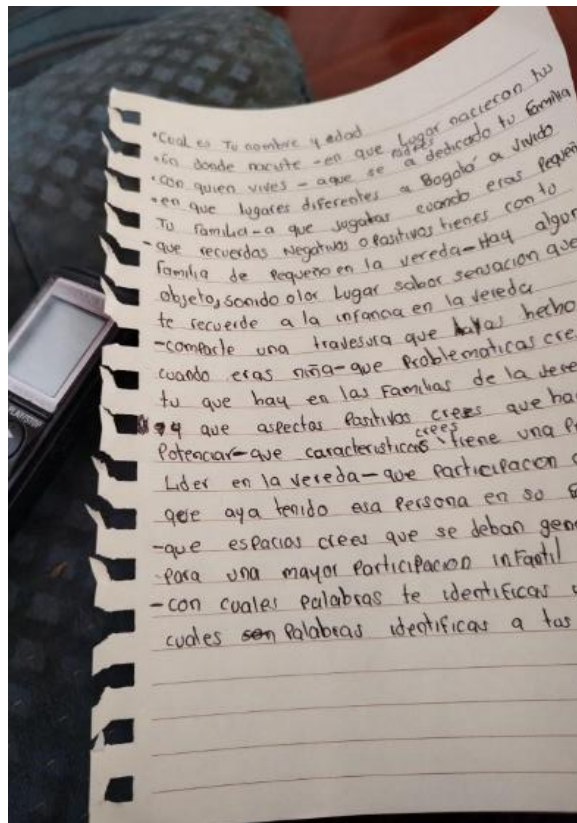 •Cual es Tu nombre y edad
•En donde naciste - en que Lugar nacieron tus
padres
•con quien vives - aque se a dedicado tu familia
•en que lugares diferentes a Bogotá a vivido
Tu familia - a que jugabas cuando eras pequeñ
-que recuerdas Negativos o Positivos tienes con tu
familia de pequeño en la vereda - Hay algun
objeto, sonido olor Lugar sabor sensacion que
te recuerde a la infancia en la vereda
-comparte una travesura que hayas hecho
cuando eras niña - que Problematicas cre
tu que hay en las Familias de la vere
y que aspectos Positivos crees que ha
Potenciar - que caracteristicas crees tiene una P
Lider en la vereda - que Participacion
que aya tenido esa Persona en so
-que espacios crees que se deban gen
-para una mayor Participacion infantil
-con cuales Palabras te identificas
cuales son Palabras identificas a tus
PLAY/STOP